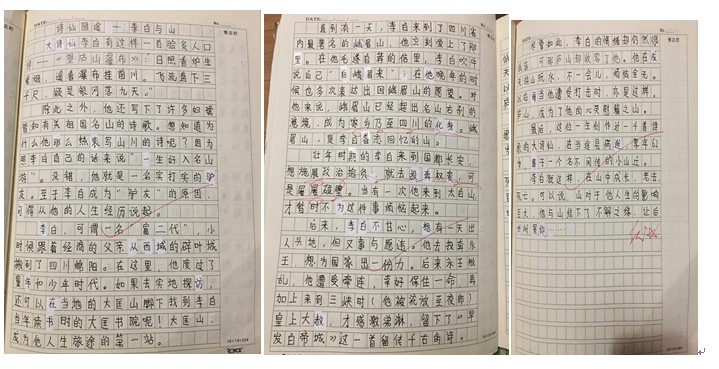 DATE:
No.
诗仙回途——李白与山
大诗仙李白有这样一首脍炙人口
——《望庐山瀑布》：日照香炉生
紫烟，遥看瀑布挂前川。飞流直下三
千尺，疑是银河落九天。”
除此之外，他还写下了许多妇孺
皆知有关祖国名山的诗歌。想知道为
什么他那么热衷写山川的诗呢？因为
想李白自己的话来说“一生好入名山
游”。没错，他就是一名实打实的驴
友。至于李白成为“驴友”的原因，
可得从他的人生经历说起。
李白，可谓一名“富二代”，小
时候跟着经商的父亲从西域的碎叶城
搬到了四川绵阳。在这里，他度过了
童年和少年时代。如果去实地探访，
还可以在当地的大匡山脚下找到李白
当年读书时的大匡书院呢！大匡山，
成为他人生旅途的第一站。
DATE:
直到有一天，李白来到了四川省
内最著名的峨眉山，他立刻爱上了那
里。在他毛遂自荐的信里，李白吹牛
说自己“自峨眉来”；在他晚年的时
候也多次表达出回峨眉山的愿望。对
他来说，峨眉山已经超出名山古刹的
意境，成为家乡乃至四川的化身。峨
眉山，是李白眷恋回忆的山。
壮年时期的李白来到国都长安，
想施展政治抱负，就去投奔权贵，可
是屡屡碰壁。当有一次他来到太白山，
才暂时不为这件事烦恼起来。
后来，李白不甘心，想有一天出
人头地，但又事与愿违。他去找永
王，想为国家出一份力。后来永王叛
乱，他遭受牵连，幸好保住一命，再
加上来到三峡时（他被流放至夜郎）
皇上大赦，才感激涕淋，留下了《早
发白帝城》这一首留传千古的诗。
尽管如此，李白的情绪却仍然很
他在
亦是这样，
庐山，成为了他的心灵慰藉之山。
最后，这位一生创作近一千首诗
的大诗仙，在当涂县病逝，享年
一个名不间传的小山边。
李白就这样，在山中成长、老去、
死亡，可以说，山对于他人生的影响
巨大，他与山结下了不解之缘，让后